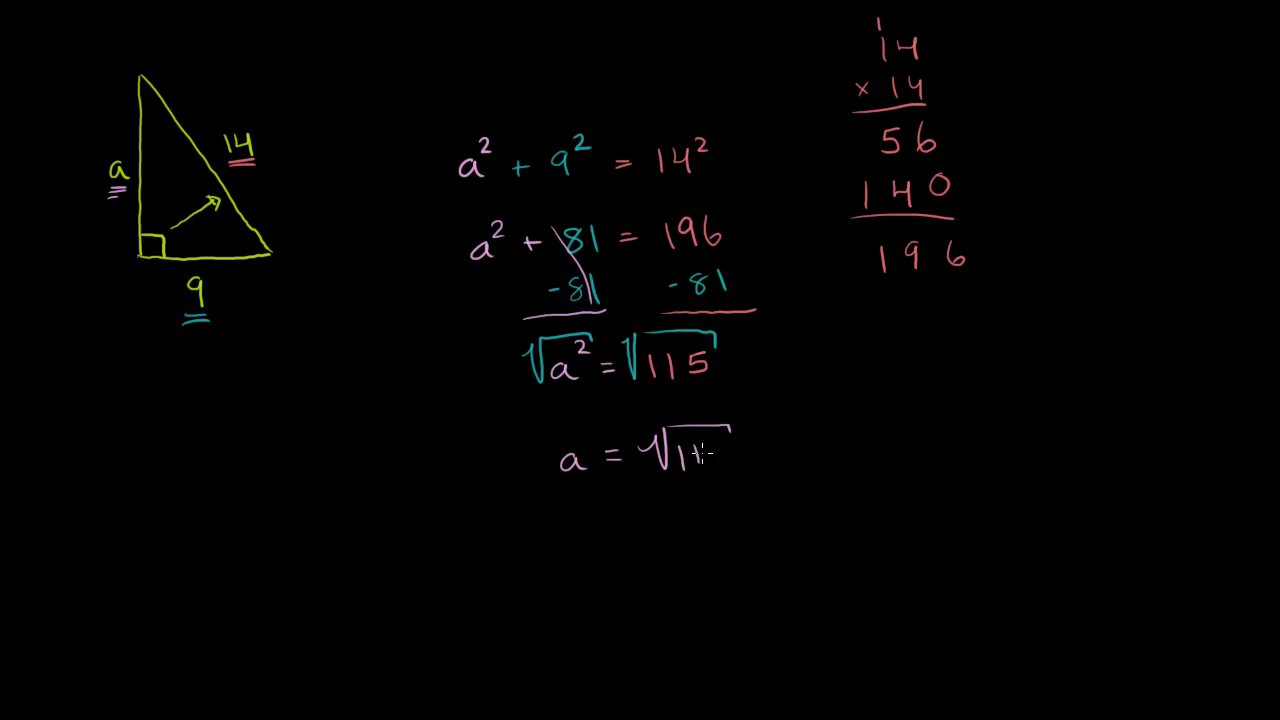 a
14
9
a² + 9² = 14²
a² + 81 = 196
-81 -81
√a² = √115
a = √11
1
14
× 14
56
140
196